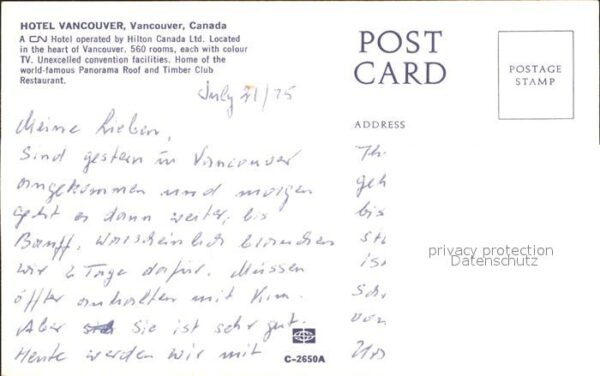 HOTEL VANCOUVER, Vancouver, Canada
A CN Hotel operated by Hilton Canada Ltd. Located
in the heart of Vancouver. 560 rooms, each with colour
TV. Unexcelled convention facilities. Home of the
world-famous Panorama Roof and Timber Club
Restaurant.
July 21/75
Meine Lieben,
Sind gestern in Vancouver
angekommen und morgen
geht es dann weiter, bis
Banff. Warscheinlich brauchen
wir 2 Tage dafür. Müssen
öfter anhalten mit Kim.
Aber Sie ist sehr gut.
Heute werden wir mit
C-2650A
POST
CARD
POSTAGE
STAMP
ADDRESS
Th
geh
bis
st
ist
sch
von
Uns
privacy protection
Datenschutz